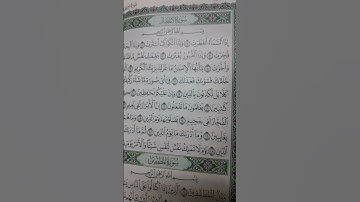 سورة الانفطار
بسم الله الرحمن الرحيم
إذا السماء انفطرت وإذا الكواكب انتثرت وإذا
فجرت وإذا القبور بعثرت علمت نفس ما
وأخرت يا أيها الإنسان ما غرك بربك الكريم
خلقك فسواك فعدلك في أي صورة ما شاء
كلا بل تكذبون بالدين وإن عليكم لحافظين
كاتبين يعلمون ما تفعلون إن الأبرار لفي نعيم
الفجار لفي جحيم يصلونها يوم الدين
بغائبين وما أدراك ما يوم الدين ثم ما أدراك
الدين يوم لا تملك نفس لنفس شيئا والأمر يومئذ
سورة المطففين
بسم الله الرحمن الرحيم
ويل للمطففين الذين إذا اكتالوا على الناس